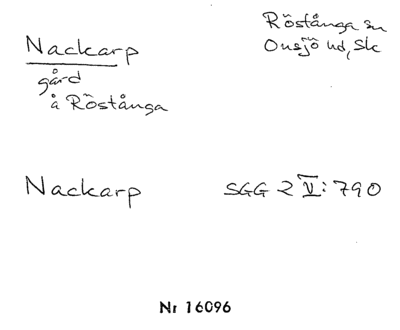 Nackarp
gård
å Röstånga
Röstånga sn
Onsjö hd, Sk
Nackarp
SGG 2 V: 790
Nr 16096